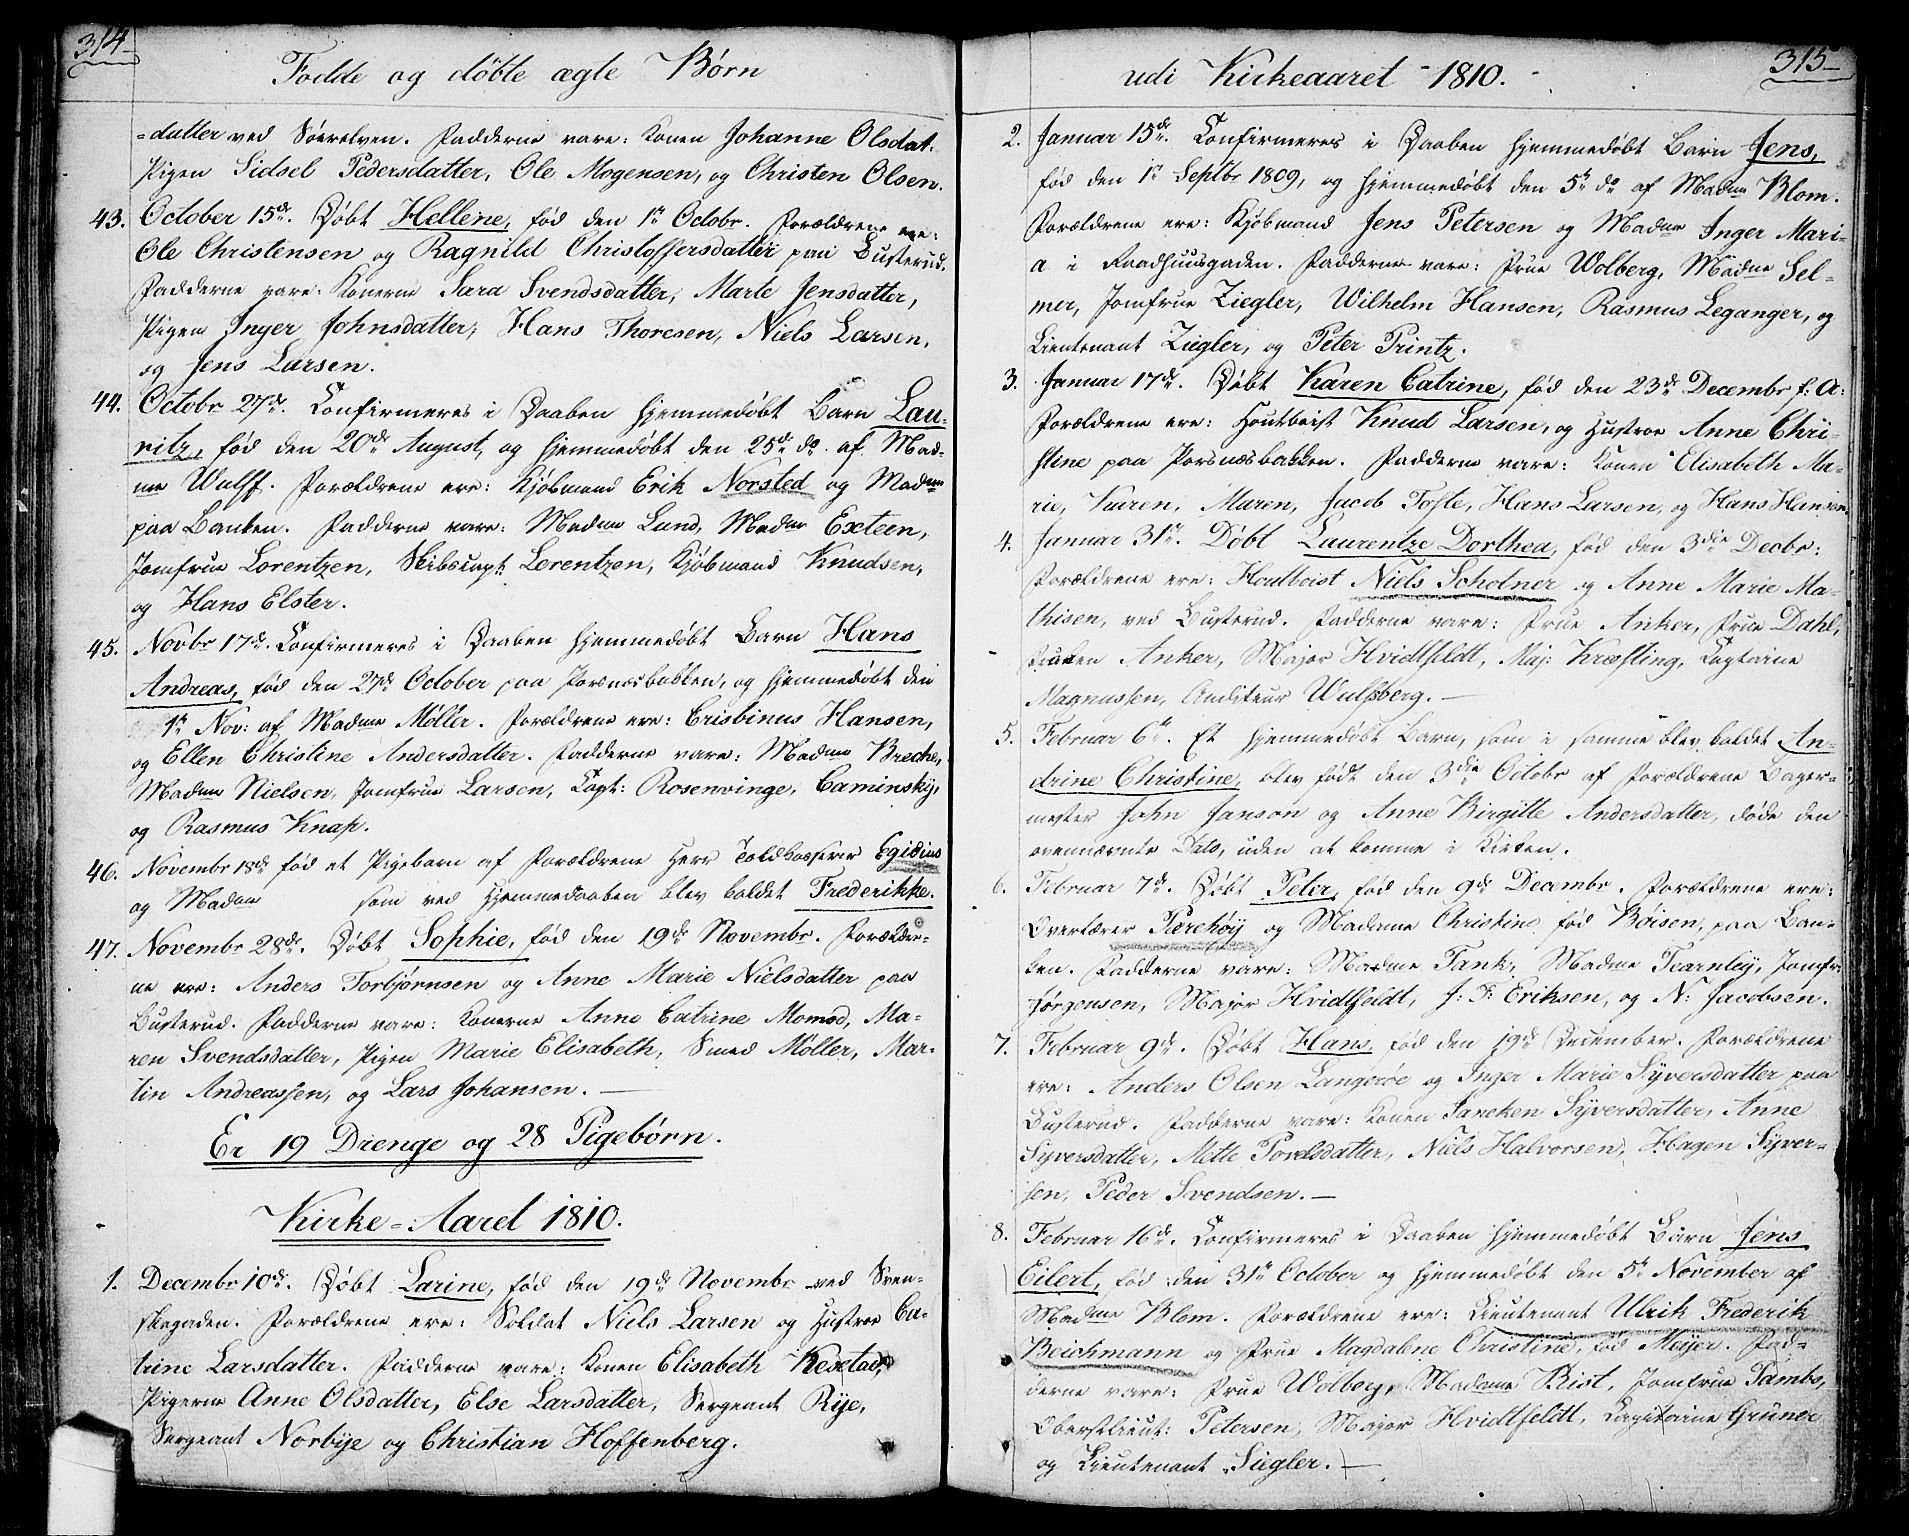 314
Fødde og døbte ægte Børn
-datter ved Sørelven. Fadderne vare: Konen Johanne Olsdat.
Pigen Sidsel Pedersdatter, Ole Mogensen, og Christen Olsen.
43. October 15de. Døbt Hellene, fød den 1te Octobr. Forældrene ere:
Ole Christensen og Ragnild Christoffersdatter paa Busterud.
Fadderne vare. Konerne Sara Svendsdatter, Marte Jensdatter,
Pigen Inger Johnsdatter, Hans Thoresen, Niels Larsen,
og Jens Larsen.
44. Octobr 27de. Confirmeres i Daaben hjemmedøbt Barn Lau-
ritz, fød den 20de August, og hjemmedøbt den 25de do. af Mad-
me Wulff. Forældrene ere: Kjøbmand Erik Norsted og Madme
paa Banken. Fadderne vare: Madme Lund, Madme Exteen,
Jomfrue Lorentzen, Skibscapt: Lorentzen, Kjøbmand Knudsen,
og Hans Elster.
45. Novbr 17de. Confirmeres i Daaben hjemmedøbt Barn Hans
Andreas, fød den 27de October paa Forsnæsbakken, og hjemmedøbt den
1te Nov: af Madme Møller. Forældrene ere: Crisbinus Hansen,
og Ellen Christine Andersdatter. Fadderne vare: Madme Breche,
Madme Nielsen, Jomfrue Larsen, Capt: Rosenvinge, Caminsky,
og Rasmus Knap.
46. Novembr 18de fød et Pigebarn af Forældrene Herr Toldkasserer Egidius
og Madme som ved Hjemmedaaben blev kaldet Frederikke.
47. Novembr 28de. Døbt Sophie, fød den 19de Novembr. Forældre-
ne ere: Anders Torbjørnsen og Anne Marie Nielsdatter paa
Busterud. Fadderne vare: Konerne Anne Catrine Momod, Ma-
ren Svendsdatter, Pigen Marie Elisabeth, Smed Møller, Mar-
tin Andreassen, og Lars Johansen.
Er 19 Drenge og 28 Pigebørn.
Kirke-Aaret 1810.
1. Decembr 10de. Døbt Larine, fød den 19de Novembr ved Sven-
skegaden. Forældrene ere: Soldat Niels Larsen og Hustroe Ca-
trine Larsdatter. Fadderne vare: Konen Elisabeth
Pigerne Anne Olsdatter, Else Larsdatter, Sergeant Rye,
Sergeant Norbye og Christian Hoffenberg.
315
udi Kirkeaaret 1810.
2. Januar 15de. Confirmeres i Daaben hjemmedøbt Barn Jens,
fød den 1te Septbr 1809, og hjemmedøbt den 5te do af Madme Blom.
Forældrene ere: Kjøbmand Jens Petersen og Madme Inger Mari-
a i Raadhuusgaden. Fadderne vare: Frue Wolberg, Madme Sel-
mer, Jomfrue Ziegler, Wilhelm Hansen, Rasmus Leganger, og
Lieutenant Ziegler, og Peter Printz.
3. Januar 17de. Døbt Karen Catrine, fød den 23de Decembr f: A:
Forældrene ere: Houtboist Knud Larsen, og Hustroe Anne Chri-
stine paa Forsnæsbakken. Fadderne vare: Konen Elisabeth Ma-
rie, Karen, Maren, Jacob Tofte, Hans Larsen, og Hans Hansen.
4. Januar 31te. Døbt Laurentze Dorthea, fød den 3die Decbr:
Forældrene ere: Houtboist Niels Scholner og Anne Marie Ma-
thisen, ved Busterud. Fadderne vare: Frue Anker, Frue Dahl,
Frøken Anker, Major Hvidtfeldt, Maj: Kræfting, Capitaine
Magnussen, Auditeur Wulfsberg.
5. Februar 6te. Et hjemmedøbt Barn, som i samme blev kaldet An-
drine Christine, blev født den 3die Octobr af Forældrene Bager-
mester John Janson og Anne Birgitte Andersdatter, døde den
ovennævnte Dato, uden at komme i Kirken.
6. Februar 7de. Døbt Peter, fød den 9de Decembr. Forældrene ere:
Overlærer Pterehøy og Madame Christine fød Bøisen, paa Ban-
ken. Fadderne vare: Madme Tank, Madme Tearnley, Jomfr.
Jørgensen, Major Hvidtfeldt, J: F: Eriksen, og N: Jacobsen.
7. Februar 9de. Døbt Hans, fød den 19de December. Forældrene
ere: Anders Olsen Langerøe og Inger Marie Syversdatter paa
Busterud. Fadderne vare: Konen Janeken Syversdatter, Anne
Syversdatter, Mette Povelsdatter, Niels Halvorsen, Hagen Syver-
sen, Peder Svendsen.
8. Februar 16de. Confirmeres i Daaben hjemmedøbt Barn Jens
Eilert, fød den 31te October og hjemmedøbt den 5te November af
Madme Blom. Forældrene ere: Lieutenant Ulrik Frederik
Beichmann og Frue Magdalene Christine, fød Meyer. Fad-
derne vare: Frue Wolberg, Madame Rist, Jomfrue Tambs,
Oberstlieut: Petersen, Major Hvidtfeldt, Capitaine Grüner
og Lieutenant Siegler.